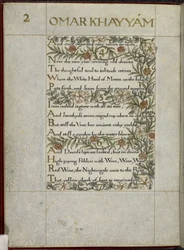 2 OMAR KHAYYÁM
Now the new year reviving old desires
The thoughtful soul to solitude retires
Where the White Hand of Moses on the
Puts forth, and Jesus from the ground
indeed is gone with all its rose,
And Jamshyd's seven-ringed cup where no
But still the Vine her ancient ruby yields
And still a garden by the water blows
David's lips are locked; but in divine
High-piping Pehlevi with Wine, Wine, Wine
Red Wine, the Nightingale cries to the
That yellow cheek of hers to